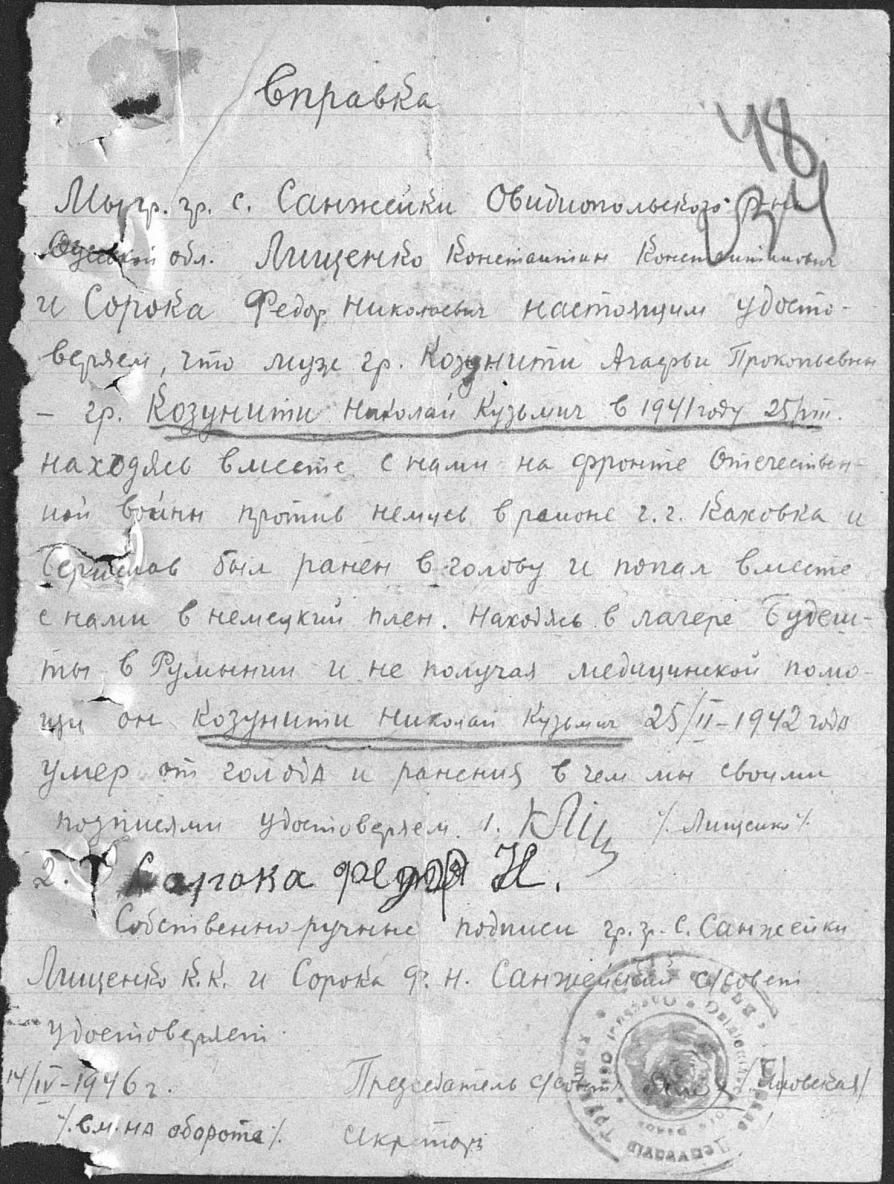 Справка
48
Мы гр. гр. с. Санжейки Овидиопольского р-на
Одесской обл. Лищенко Константин Константинович
и Сорока Федор Николаевич настоящим удосто-
веряем, что муж гр. Козунити Агафьи Прокопьевны
– гр. Козунити Николай Кузьмич в 1941 году
находясь вместе с нами на фронте Отечествен-
ной войны против немцев в районе г.г. Каховка и
Берислав был ранен в голову и попал вместе
с нами в немецкий плен. Находясь в лагере Будеш-
ты в Румынии и не получая медицинской помо-
щи он Козунити Николай Кузьмич 25/II-1942 года
умер от голода и ранения в чем мы своими
подписями удостоверяем. 1. /Лищенко/
2. Сорока Федор Н.
Собственно-ручные подписи гр.гр. с. Санжейки
Лищенко К.К. и Сорока Ф.Н. Санжейский с/совет
удостоверяет.
14/IV-1946 г. Председатель с/совета
/см. на обороте/ секретарь